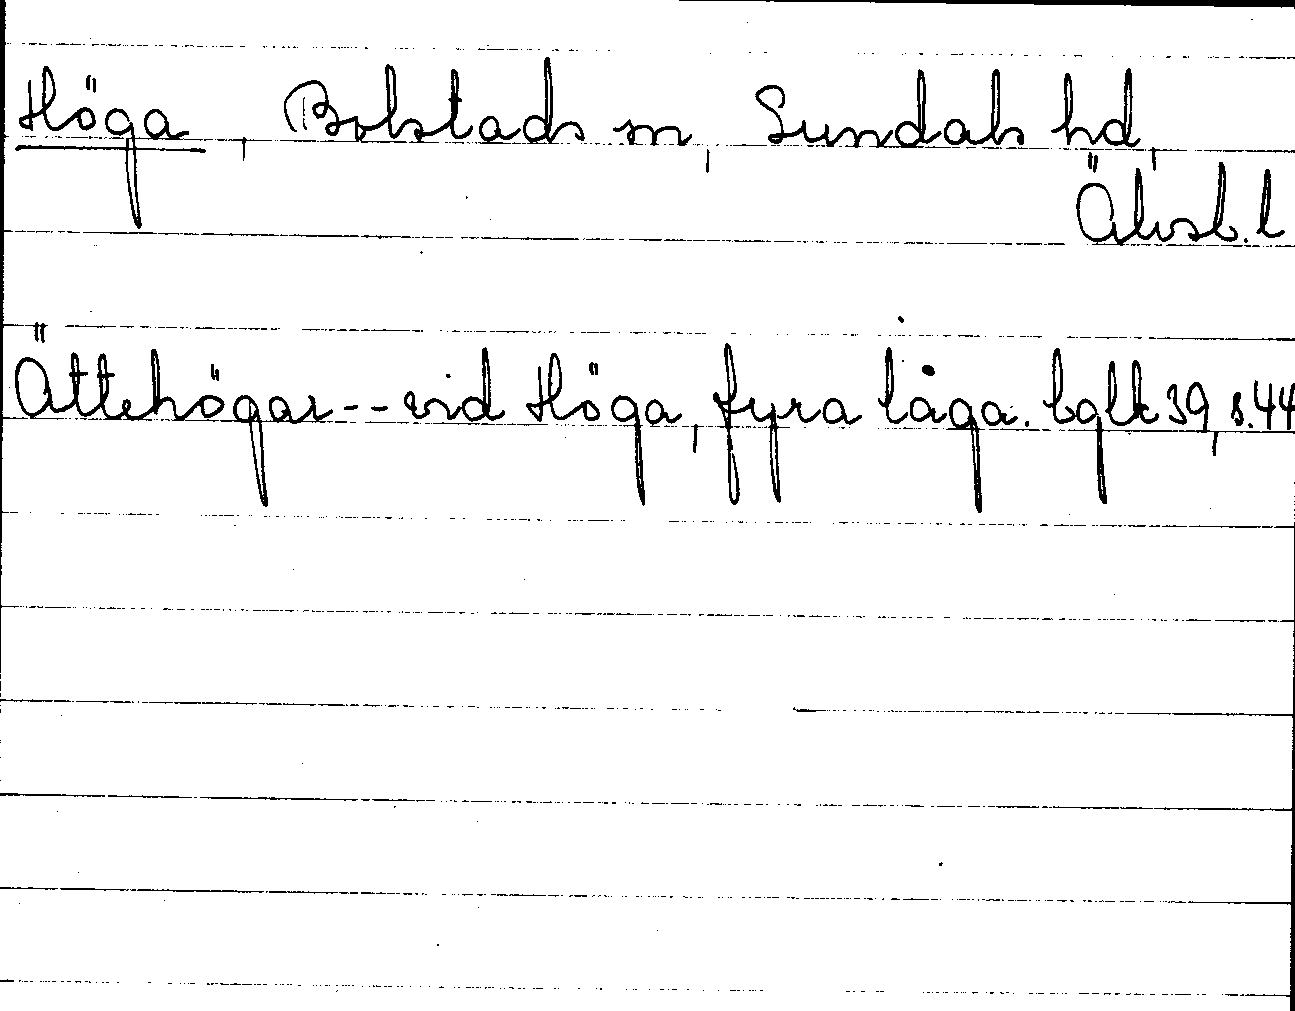 Höga, Bolstads sn, Sundals hd,
Älvsb. l
Ättehögar -- vid Höga, fyra låga. bglk 39, s. 44